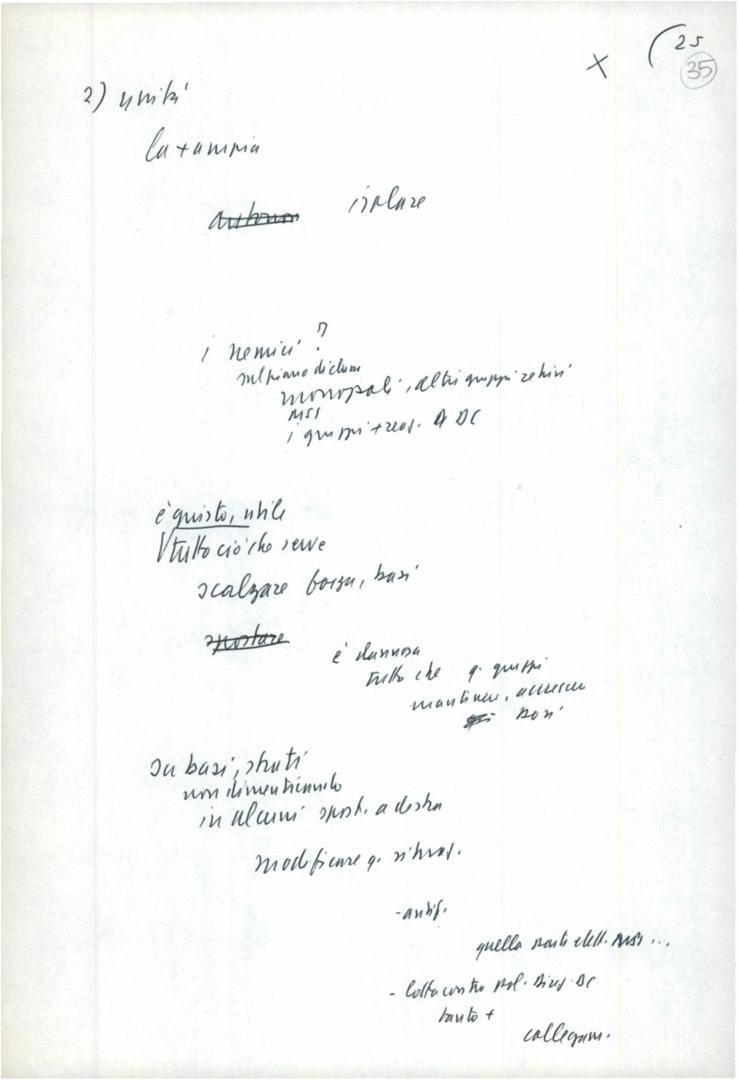 X (25
35
2) unità
la + ampia
isolare
i nemici ?
sul piano di classe
monopoli, altri gruppi
MSI
i gruppi + reaz. DC
è giusto, utile
tutto ciò che serve
scalzare forza, basi
spostare
è dannosa
tutto che q. gruppi
mantiene, accresce
su basi, strati
non dimentichiamolo
in alcuni spost. a destra
modificare q. situaz.
- antif.
quella parte elett. MSI ...
- lotta contro pol. DC
tanto +
collegam.